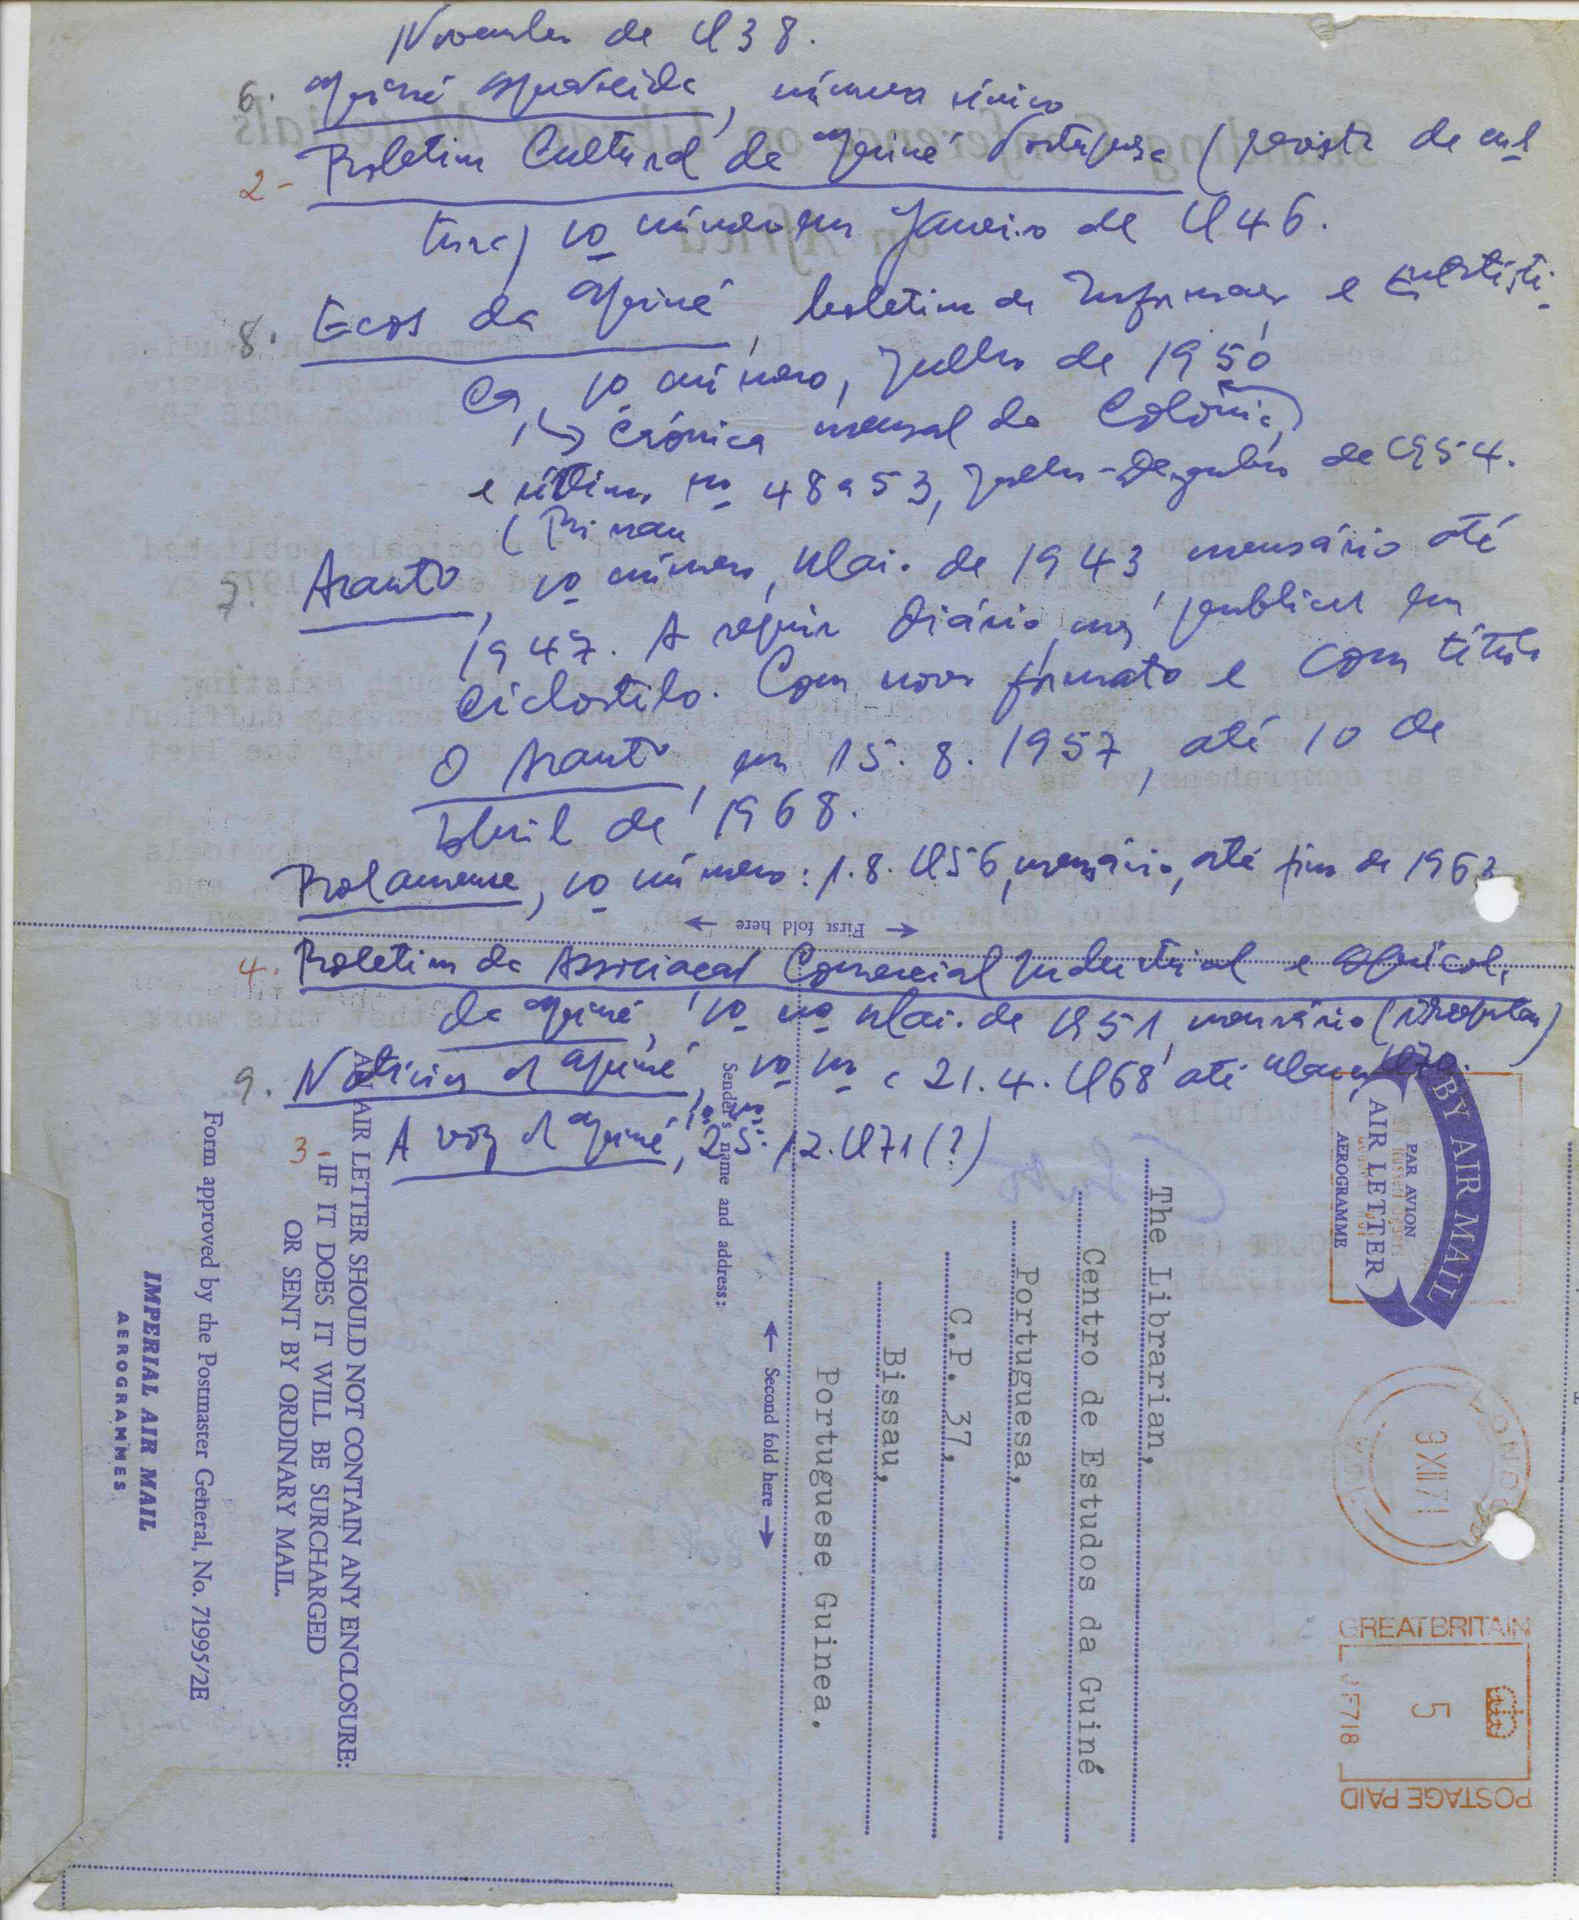 Novembro de 1938.
6. Guiné Agradecida, número único
2- Boletim Cultural da Guiné Portuguesa (revista de cul
tura) 1º número em Janeiro de 1946.
8. Ecos da Guiné, boletim de Informação e Estatísti-
ca, 1º número, Julho de 1950
↳ Crónica mensal da Colónia,
e último nº 48 a 53, Julho-Dezembro de 1954.
(Bissau
7. Arauto, 1º número, Maio de 1943 mensário até
1947. A seguir diário, mas publicar em
ciclostilo. Com novo formato e com título
O Arauto, em 15.8.1957, até 10 de
Abril de 1968.
Bolamense, 1º número: 1.8.1956, mensário, até fins de 1963
← First fold here →
4. Boletim da Associação Comercial Industrial e Agrícola
da Guiné, 1º nº Maio de 1951, mensário (irregular)
9. Notícias da Guiné, 1º nº 21.4.1968 até 1970.
3. A voz da Guiné, 1º nº: 25.12.1971 (?)
BY AIR MAIL
PAR AVION
AIR LETTER
AEROGRAMME
9 XII 71
GREAT BRITAIN
5
POSTAGE PAID
The Librarian,
Centro de Estudos da Guiné
Portuguesa,
C.P. 37,
Bissau,
Portuguese Guinea,
← Second fold here →
Sender's name and address:
AN AIR LETTER SHOULD NOT CONTAIN ANY ENCLOSURE:
IF IT DOES IT WILL BE SURCHARGED
OR SENT BY ORDINARY MAIL.
Form approved by the Postmaster General, No. 71995/2E
IMPERIAL AIR MAIL
AEROGRAMMES